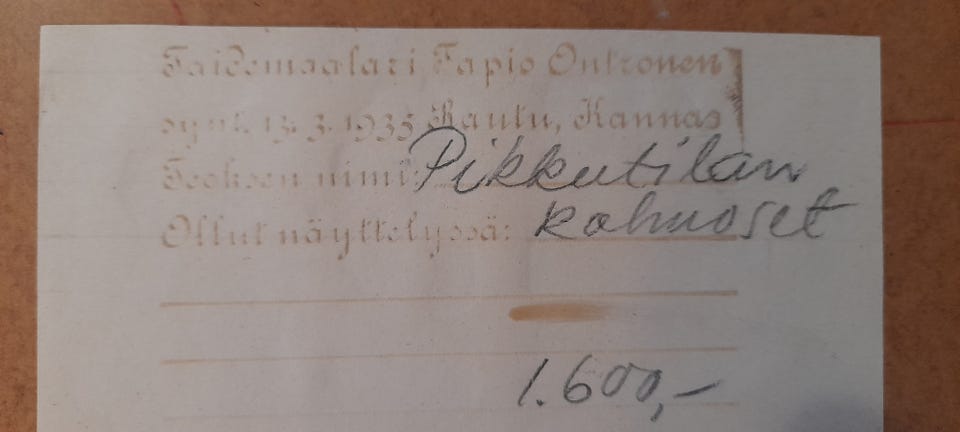 Taidemaalari Tapio Ontronen
synt. 13. 3. 1935 Rautu, Kannas
Teoksen nimi: Pikkutilan
Ollut näyttelyssä:
1.600,-